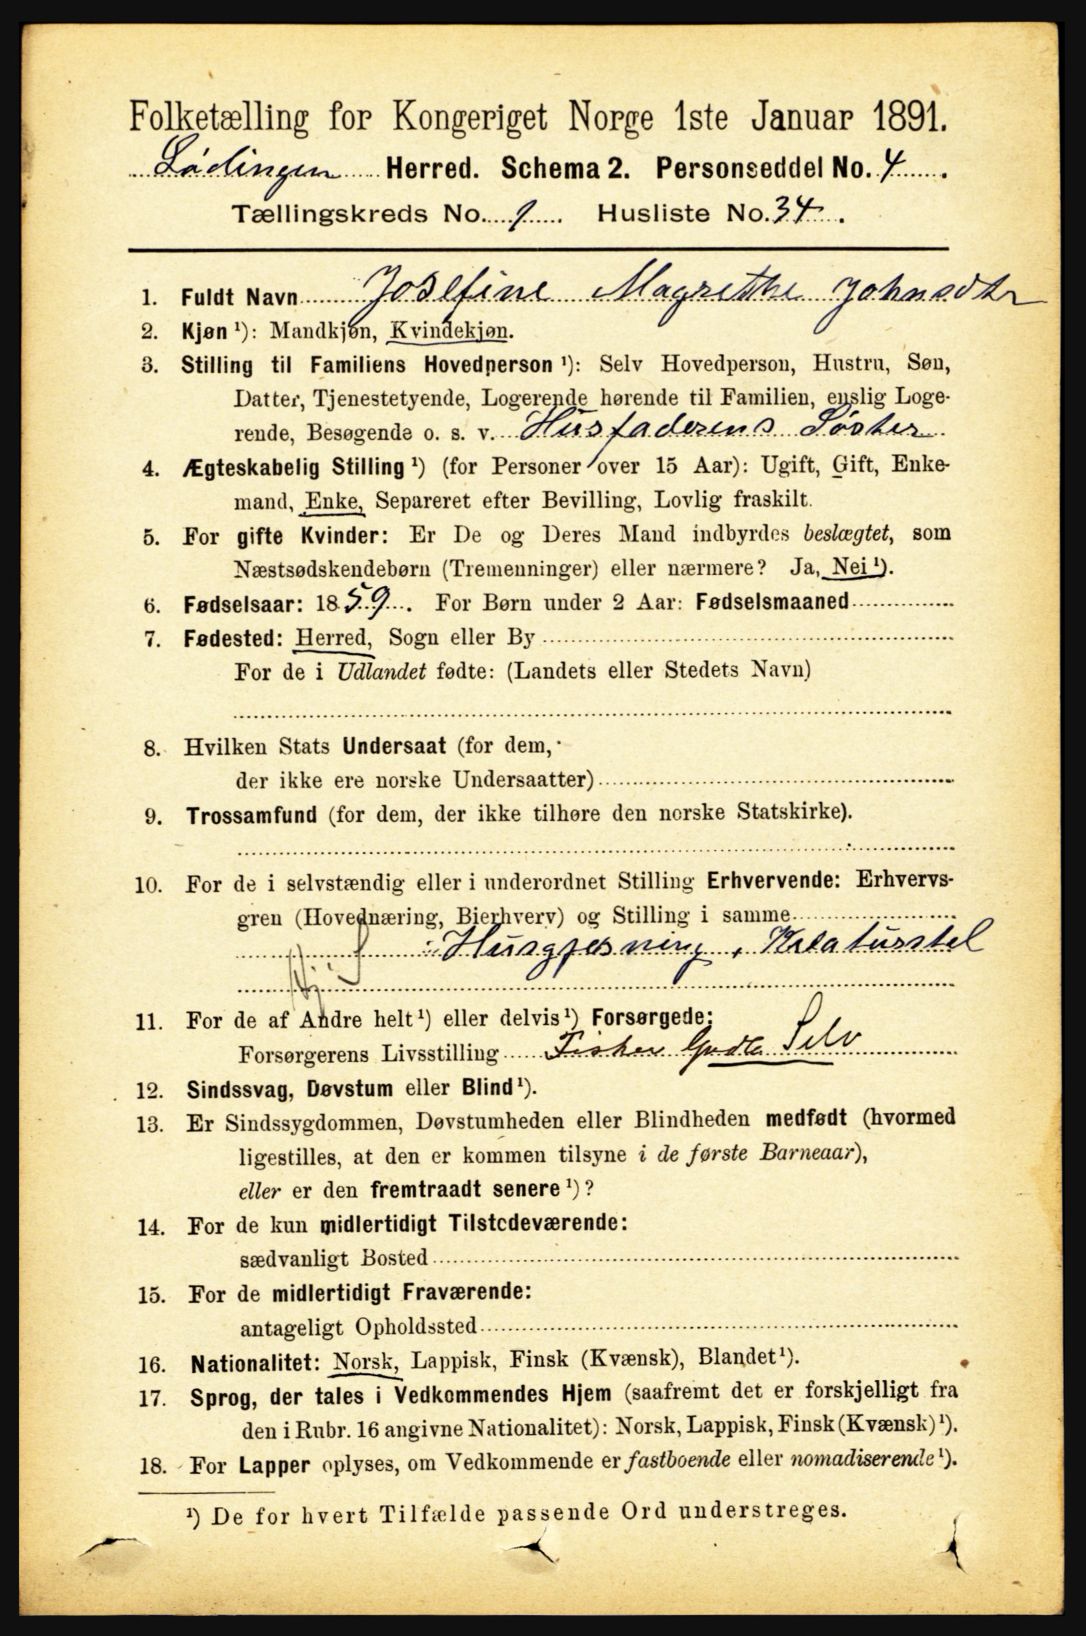 Folketælling for Kongeriget Norge 1ste Januar 1891.
Lødingen Herred. Schema 2. Personseddel No. 4.
Tællingskreds No. 9. Husliste No. 34.
1. Fuldt Navn Josefine Magrethe Johnsdtr
2. Kjøn ¹): Mandkjøn, Kvindekjøn.
3. Stilling til Familiens Hovedperson ¹): Selv Hovedperson, Hustru, Søn,
Datter, Tjenestetyende, Logerende hørende til Familien, enslig Loge-
rende, Besøgende o. s. v. Husfaderens Søster
4. Ægteskabelig Stilling ¹) (for Personer over 15 Aar): Ugift, Gift, Enke-
mand, Enke, Separeret efter Bevilling, Lovlig fraskilt.
5. For gifte Kvinder: Er De og Deres Mand indbyrdes beslægtet, som
Næstsødskendebørn (Tremenninger) eller nærmere? Ja, Nei ¹).
6. Fødselsaar: 1859. For Børn under 2 Aar: Fødselsmaaned
7. Fødested: Herred, Sogn eller By
For de i Udlandet fødte: (Landets eller Stedets Navn)
8. Hvilken Stats Undersaat (for dem,
der ikke ere norske Undersaatter)
9. Trossamfund (for dem, der ikke tilhøre den norske Statskirke).
10. For de i selvstændig eller i underordnet Stilling Erhvervende: Erhvervs-
gren (Hovednæring, Bierhverv) og Stilling i samme
Husgjerning, Kreaturstel
11. For de af Andre helt ¹) eller delvis ¹) Forsørgede:
Forsørgerens Livsstilling Fisker Selv
12. Sindssvag, Døvstum eller Blind ¹).
13. Er Sindssygdommen, Døvstumheden eller Blindheden medfødt (hvormed
ligestilles, at den er kommen tilsyne i de første Barneaar),
eller er den fremtraadt senere ¹)?
14. For de kun midlertidigt Tilstedeværende:
sædvanligt Bosted
15. For de midlertidigt Fraværende:
antageligt Opholdssted
16. Nationalitet: Norsk, Lappisk, Finsk (Kvænsk), Blandet ¹).
17. Sprog, der tales i Vedkommendes Hjem (saafremt det er forskjelligt fra
den i Rubr. 16 angivne Nationalitet): Norsk, Lappisk, Finsk (Kvænsk) ¹).
18. For Lapper oplyses, om Vedkommende er fastboende eller nomadiserende ¹).
¹) De for hvert Tilfælde passende Ord understreges.